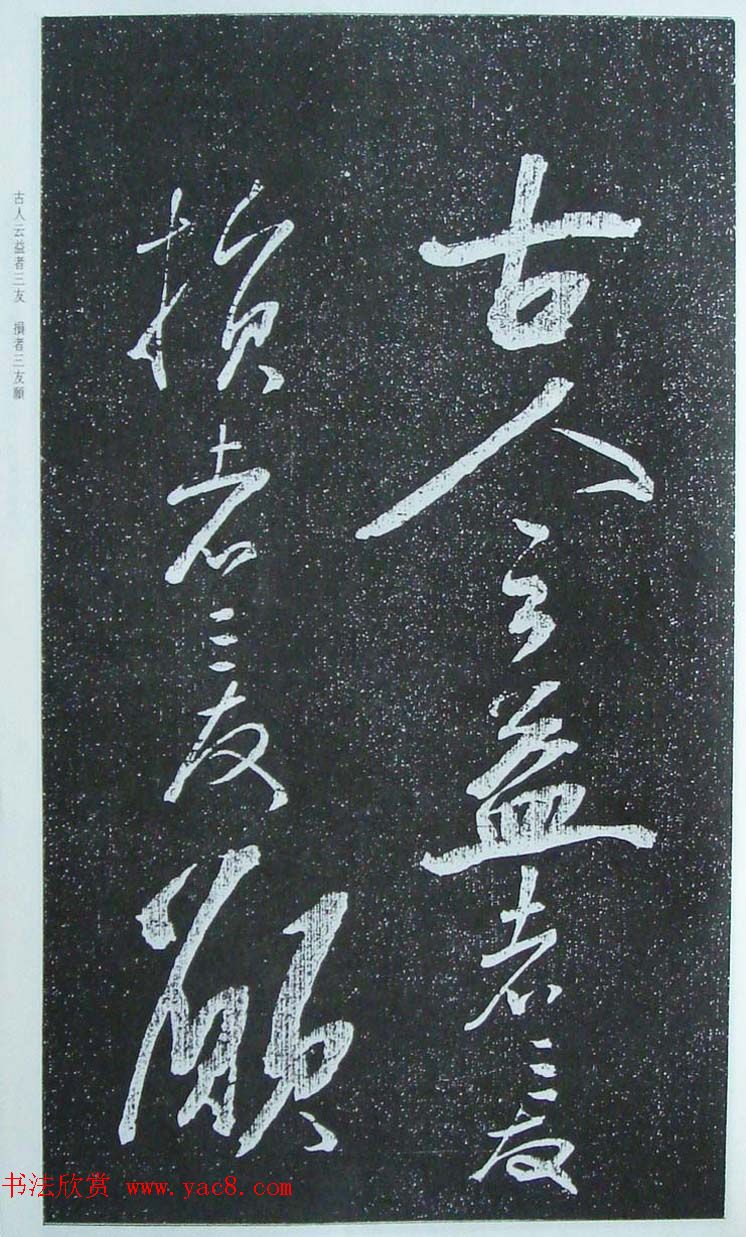 古人云益者三友
損者三友願
古人云益者三友 損者三友願
书法欣赏 www.yac8.com